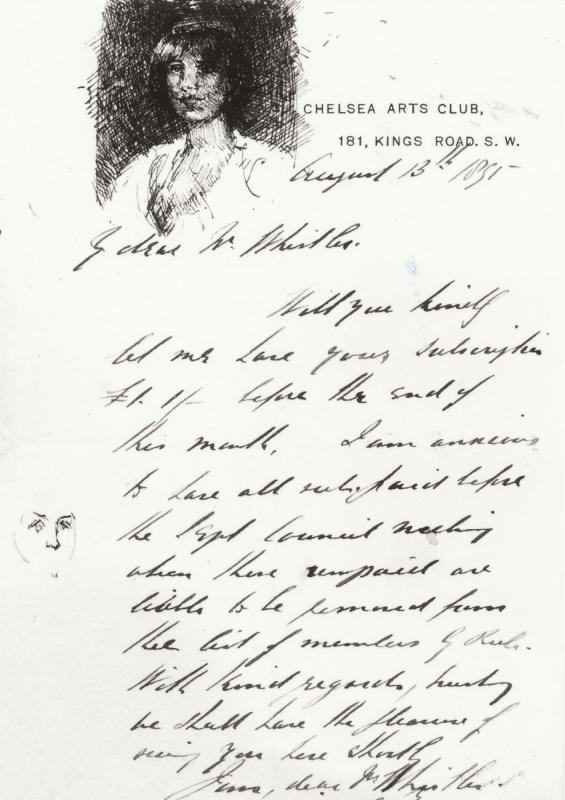 CHELSEA ARTS CLUB,
181, KINGS ROAD. S. W.
August 13th 1895
My dear Mr Whistler.
Will you kindly
let me have your subscription
£1. 1/- before the end of
this month. I am anxious
to have all subs. paid before
the Sept Council meeting
when those unpaid are
liable to be removed from
the list of members by Rule.
With kind regards, trusting
we shall have the pleasure of
seeing you here shortly
Yours, dear Mr Whistler